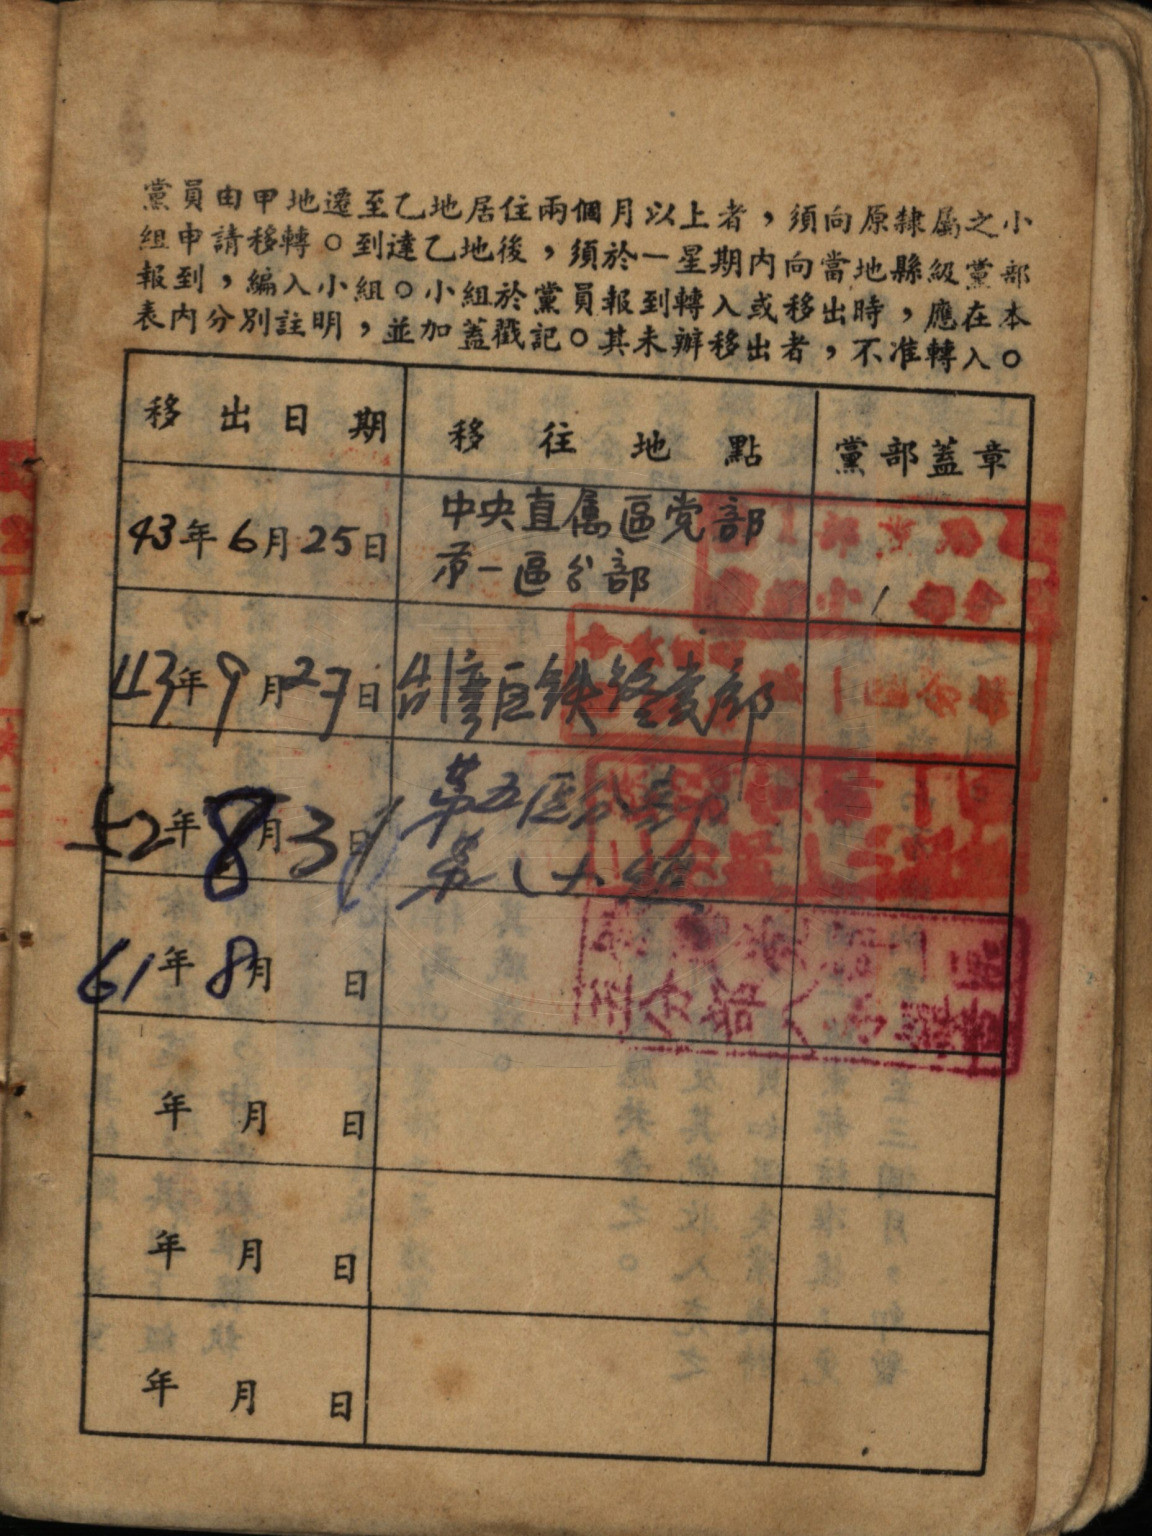 黨員由甲地遷至乙地居住兩個月以上者，須向原隸屬之小
組申請移轉。到達乙地後，須於一星期內向當地縣級黨部
報到，編入小組。小組於黨員報到轉入或移出時，應在本
表內分別註明，並加蓋戳記。其未辦移出者，不准轉入。
移出日期 移往地點 黨部蓋章
43年6月25日 中央直属區党部
第一區分部
43年9月27日 台灣區鉄路党部
52年8月3日 第五区分党部
第八小組
61年8月 日
年 月 日
年 月 日
年 月 日